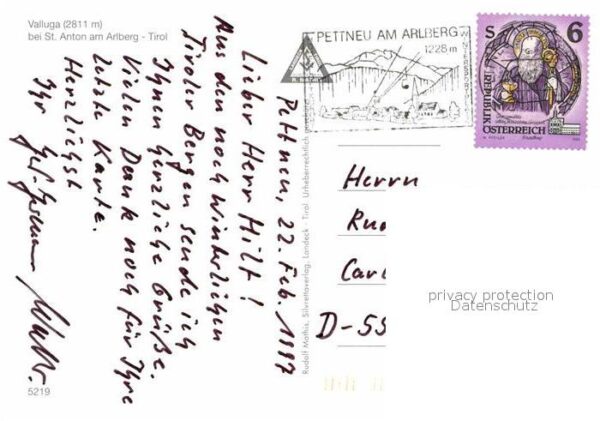 Valluga (2811 m)
bei St. Anton am Arlberg - Tirol
Pettneu, 22. Feb. 1997
Lieber Herr Hilt!
Aus den noch winterlichen
Tiroler Bergen sende ich
Ihnen herzliche Grüße.
Vielen Dank noch für Ihre
letzte Karte.
Herzlichst
Ihr
5219
Rudolf Mathis, Silvrettaverlag, Landeck - Tirol Urheberrechtlich
PETTNEU AM ARLBERG
1228 m
S 6
REPUBLIK
ÖSTERREICH
Herrn
Ru
Car
D-55
privacy protection
Datenschutz